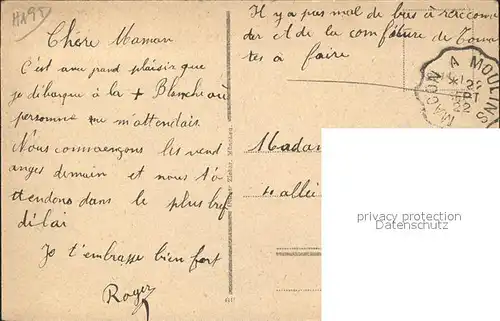 H19D
Chère Maman
C'est avec grand plaisir que
je débarque à la + Blanche où
personne ne m'attendais.
Nous commençons les vend
anges demain et nous t'a
ttendons dans le plus bref
délai
Je t'embrasse bien fort
Roger
Il y a pas mal de bas à raccomo
der et de la confiture de toma
tes à faire
MACON A MOULINS
22
Madam
allée
privacy protection
Datenschutz